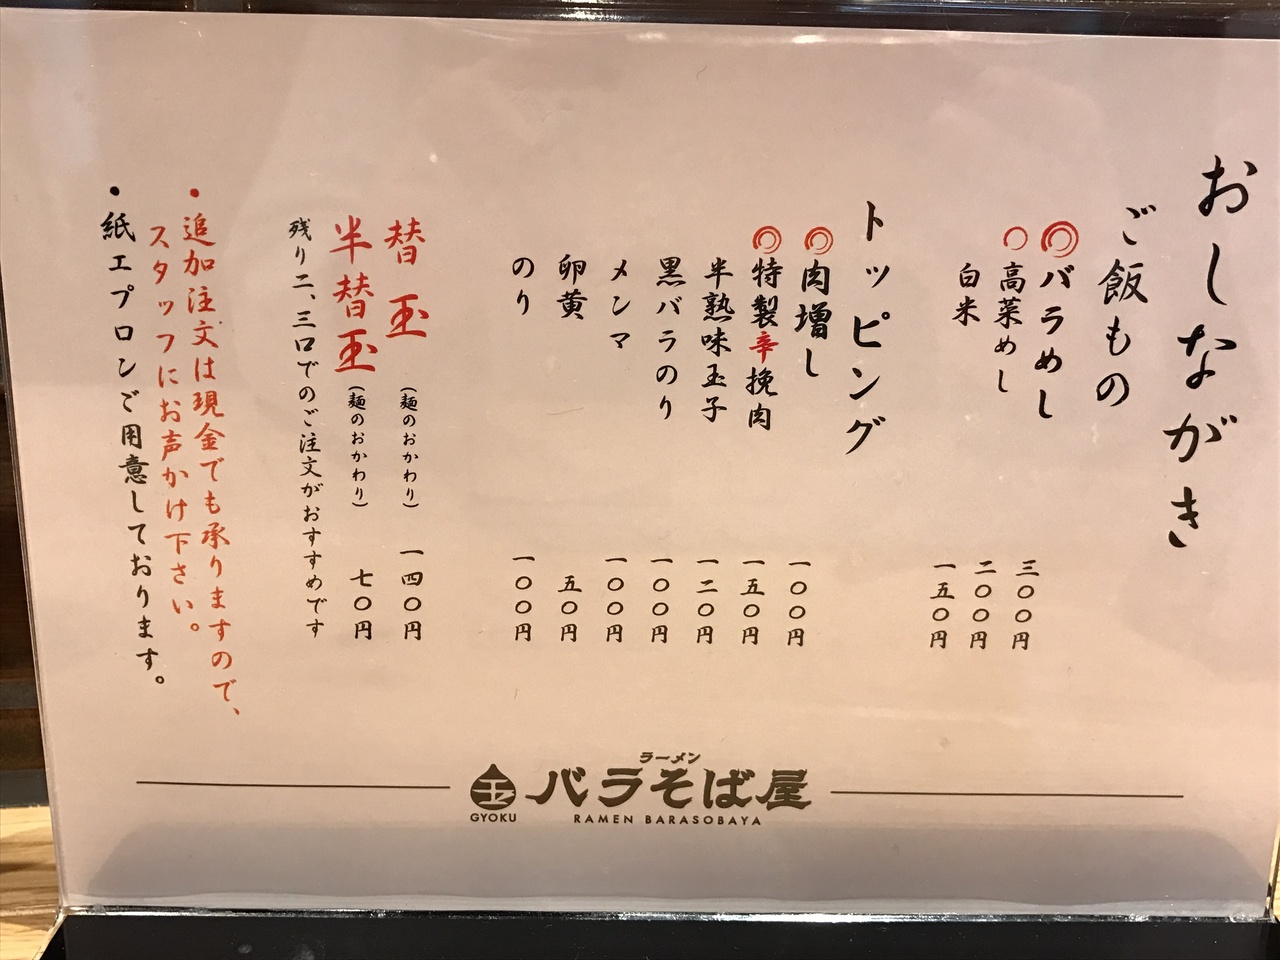 おしながき
ご飯もの
バラめし 三〇〇円
高菜めし 二〇〇円
白米 一五〇円
トッピング
肉増し 一〇〇円
特製辛挽肉 一五〇円
半熟味玉子 一二〇円
黒バラのり 一〇〇円
メンマ 一〇〇円
卵黄 五〇円
のり 一〇〇円
替玉(麺のおかわり) 一四〇円
半替玉(麺のおかわり) 七〇円
残り二、三口でのご注文がおすすめです
・追加注文は現金でも承りますので、
スタッフにお声かけ下さい。
・紙エプロンご用意しております。
ラーメン
玉 バラそば屋
GYOKU RAMEN BARASOBAYA